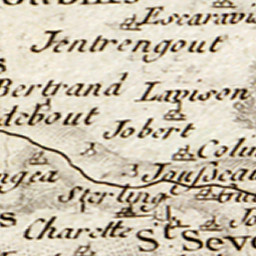 Escaravis
Jentrengout
Bertrand
Lavison
debout
Jobert
Colin
Jausseau
ngea
Sterling
Charette
St. Seve